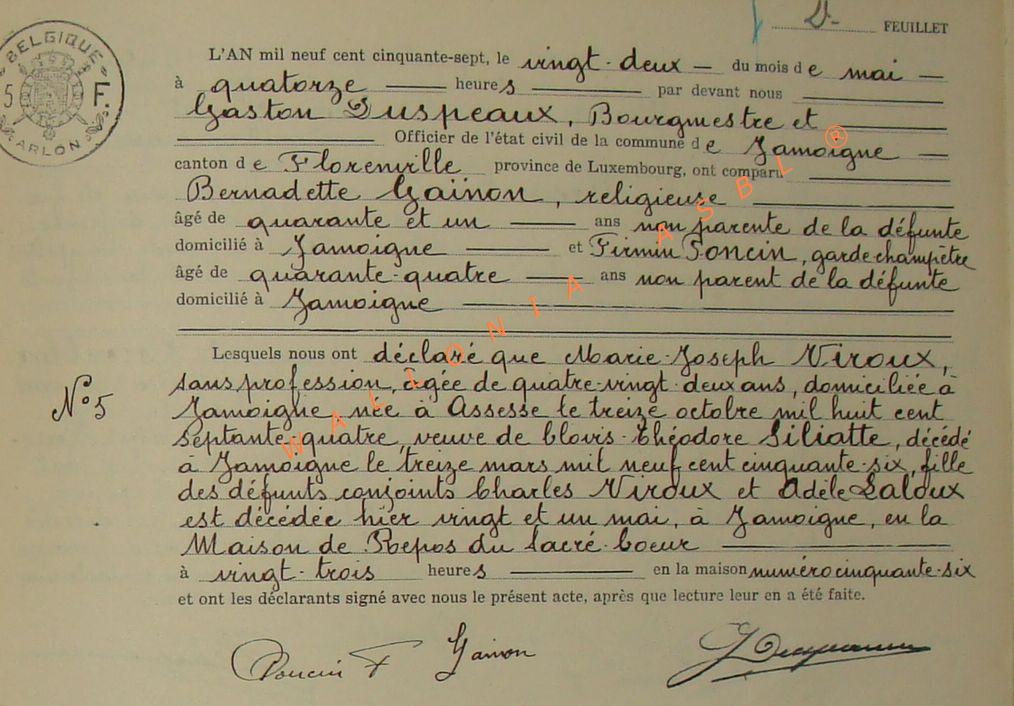 D. FEUILLET
BELGIQUE
5 F.
ARLON
L'AN mil neuf cent cinquante-sept, le vingt-deux du mois de mai
à quatorze heures par devant nous
Gaston Duspeaux, Bourgmestre et
Officier de l'état civil de la commune de Jamoigne
canton de Florenville province de Luxembourg, ont comparu
Bernadette Gainon, religieuse
âgé de quarante et un ans non parente de la défunte
domicilié à Jamoigne et Firmin Poncin, garde champêtre
âgé de quarante-quatre ans non parent de la défunte
domicilié à Jamoigne
Lesquels nous ont déclaré que Marie-Joseph Viroux,
N° 5
sans profession, âgée de quatre-vingt-deux ans, domiciliée à
Jamoigne née à Assesse le treize octobre mil huit cent
septante-quatre, veuve de Clovis-Théodore Siliatte, décédé
à Jamoigne le treize mars mil neuf cent cinquante-six, fille
des défunts conjoints Charles Viroux et Adèle Laloux
est décédée hier vingt et un mai, à Jamoigne, en la
Maison de Repos du Sacré-Coeur
à vingt-trois heures en la maison numéro cinquante-six
et ont les déclarants signé avec nous le présent acte, après que lecture leur en a été faite.
Poncin F Gainon
WALLONIA ASBL ®